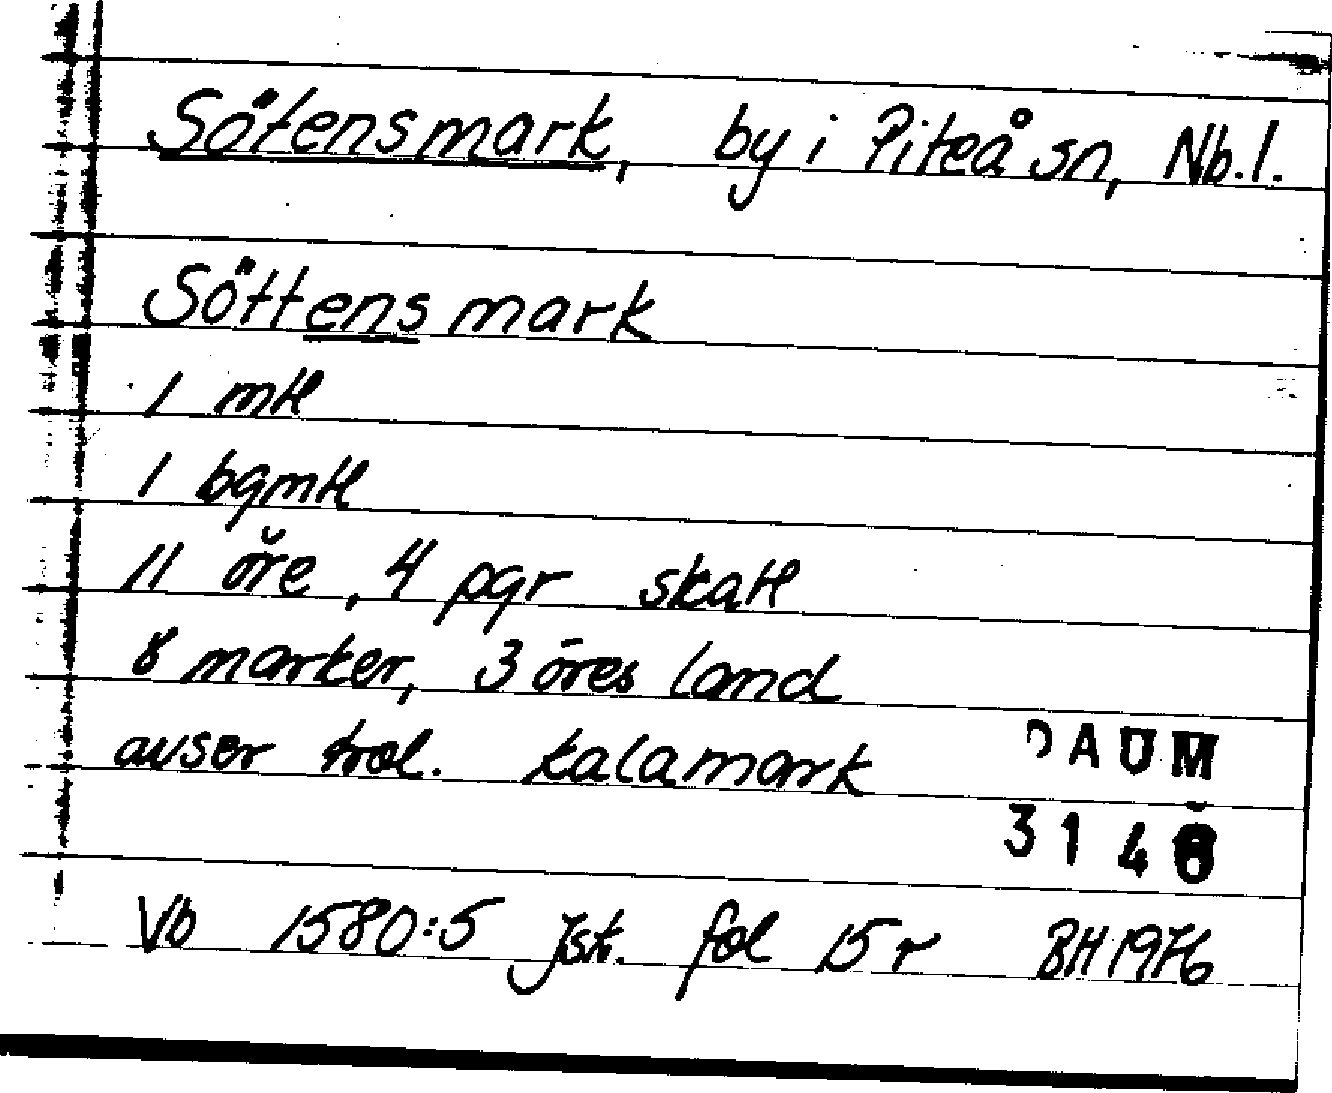 Sötensmark, by i Piteå sn, Nb. l.
Söttens mark
1 mtl
1 bgmtl
11 öre, 4 pgr skatt
8 marker, 3 öres land
avser trol. Kalamark
DAUM
3146
Vb 1580:5 Jst. fol 15 r BH 1976